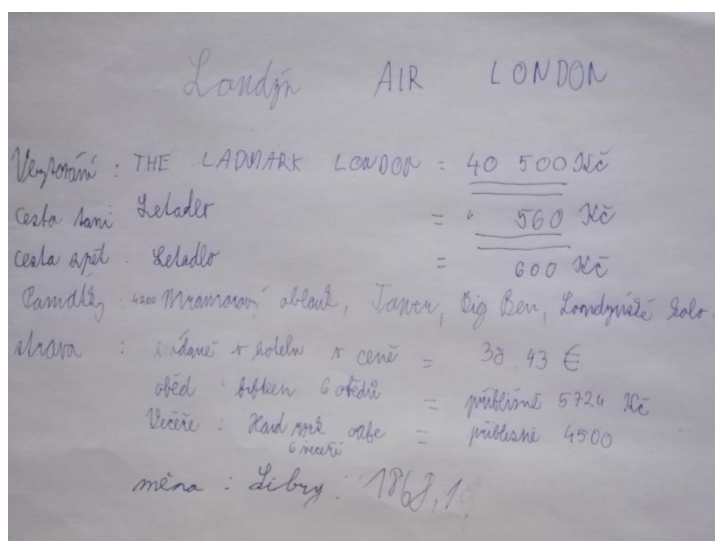 Londýn AIR LONDON
Ubytování : THE LADMARK LONDON = 40 500 Kč
cesta tam: Letadlo = 560 Kč
cesta zpět: Letadlo = 600 Kč
Památky : 4200 Mramorový oblouk, Tower, Big Ben, Londýnské kolo.
strava : snídaně v hotelu v ceně = 38.43 €
oběd : 6 obědů = přibližně 5724 Kč
Večeře : Hard rock cafe = přibližně 4500
6 večeří
měna : Libry : 1868,1